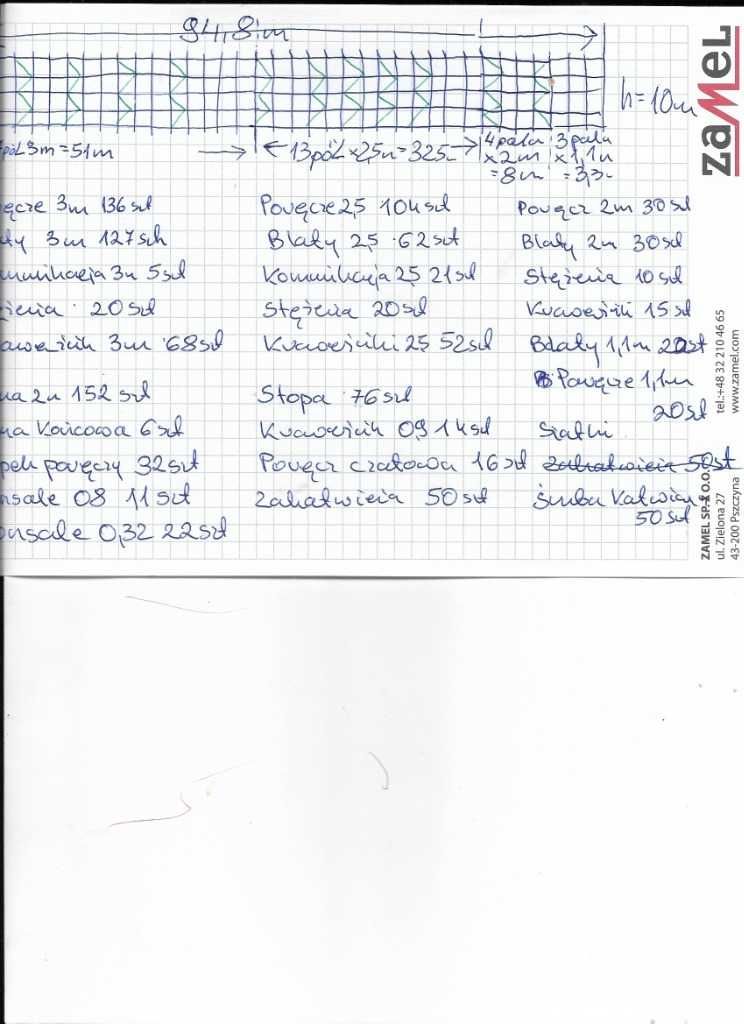 94,8 m
h=10m
pól 3m = 51m
13pól x 2,5m = 32,5m
4 pola x 2m = 8m
3 pola x 1,1m = 3,3m
ęcze 3m 136 szt
Poręcze 2,5 104 szt
Poręcz 2m 30 szt
ty 3m 127 szt
Blaty 2,5 62 szt
Blaty 2m 30 szt
munikacja 3m 5 szt
Komunikacja 2,5 21 szt
Stężenia 10 szt
żenia 20 szt
Stężenia 20 szt
Krawężniki 15 szt
awężnik 3m 68 szt
Krawężniki 2,5 52 szt
Blaty 1,1m 20 szt
Poręcze 1,1m
20 szt
ma 2m 152 szt
Stopa 76 szt
ma Końcowa 6 szt
Krawężnik 0,9 14 szt
Siatki
pek poręczy 32 szt
Poręcz czołowa 16 szt
50 szt
nsole 08 11 szt
zakotwienia 50 szt
Śruba Kotwiąca
50 szt
onsole 0,32 22 szt
zamel
ZAMEL SP. Z O.O.
ul. Zielona 27
43-200 Pszczyna
tel.:+48 32 210 46 65
www.zamel.com